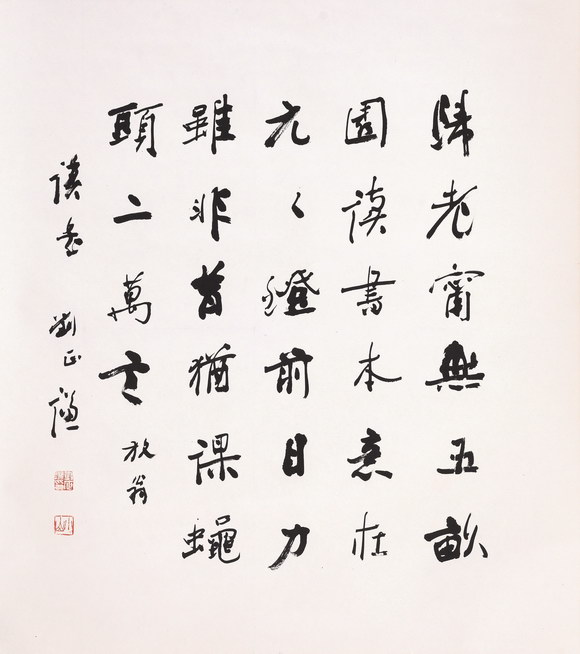 歸老甯無五畝
園讀書本意在
元々鐙前目力
雖非昔猶課蠅
頭二萬言 放翁
讀書 劉正謙